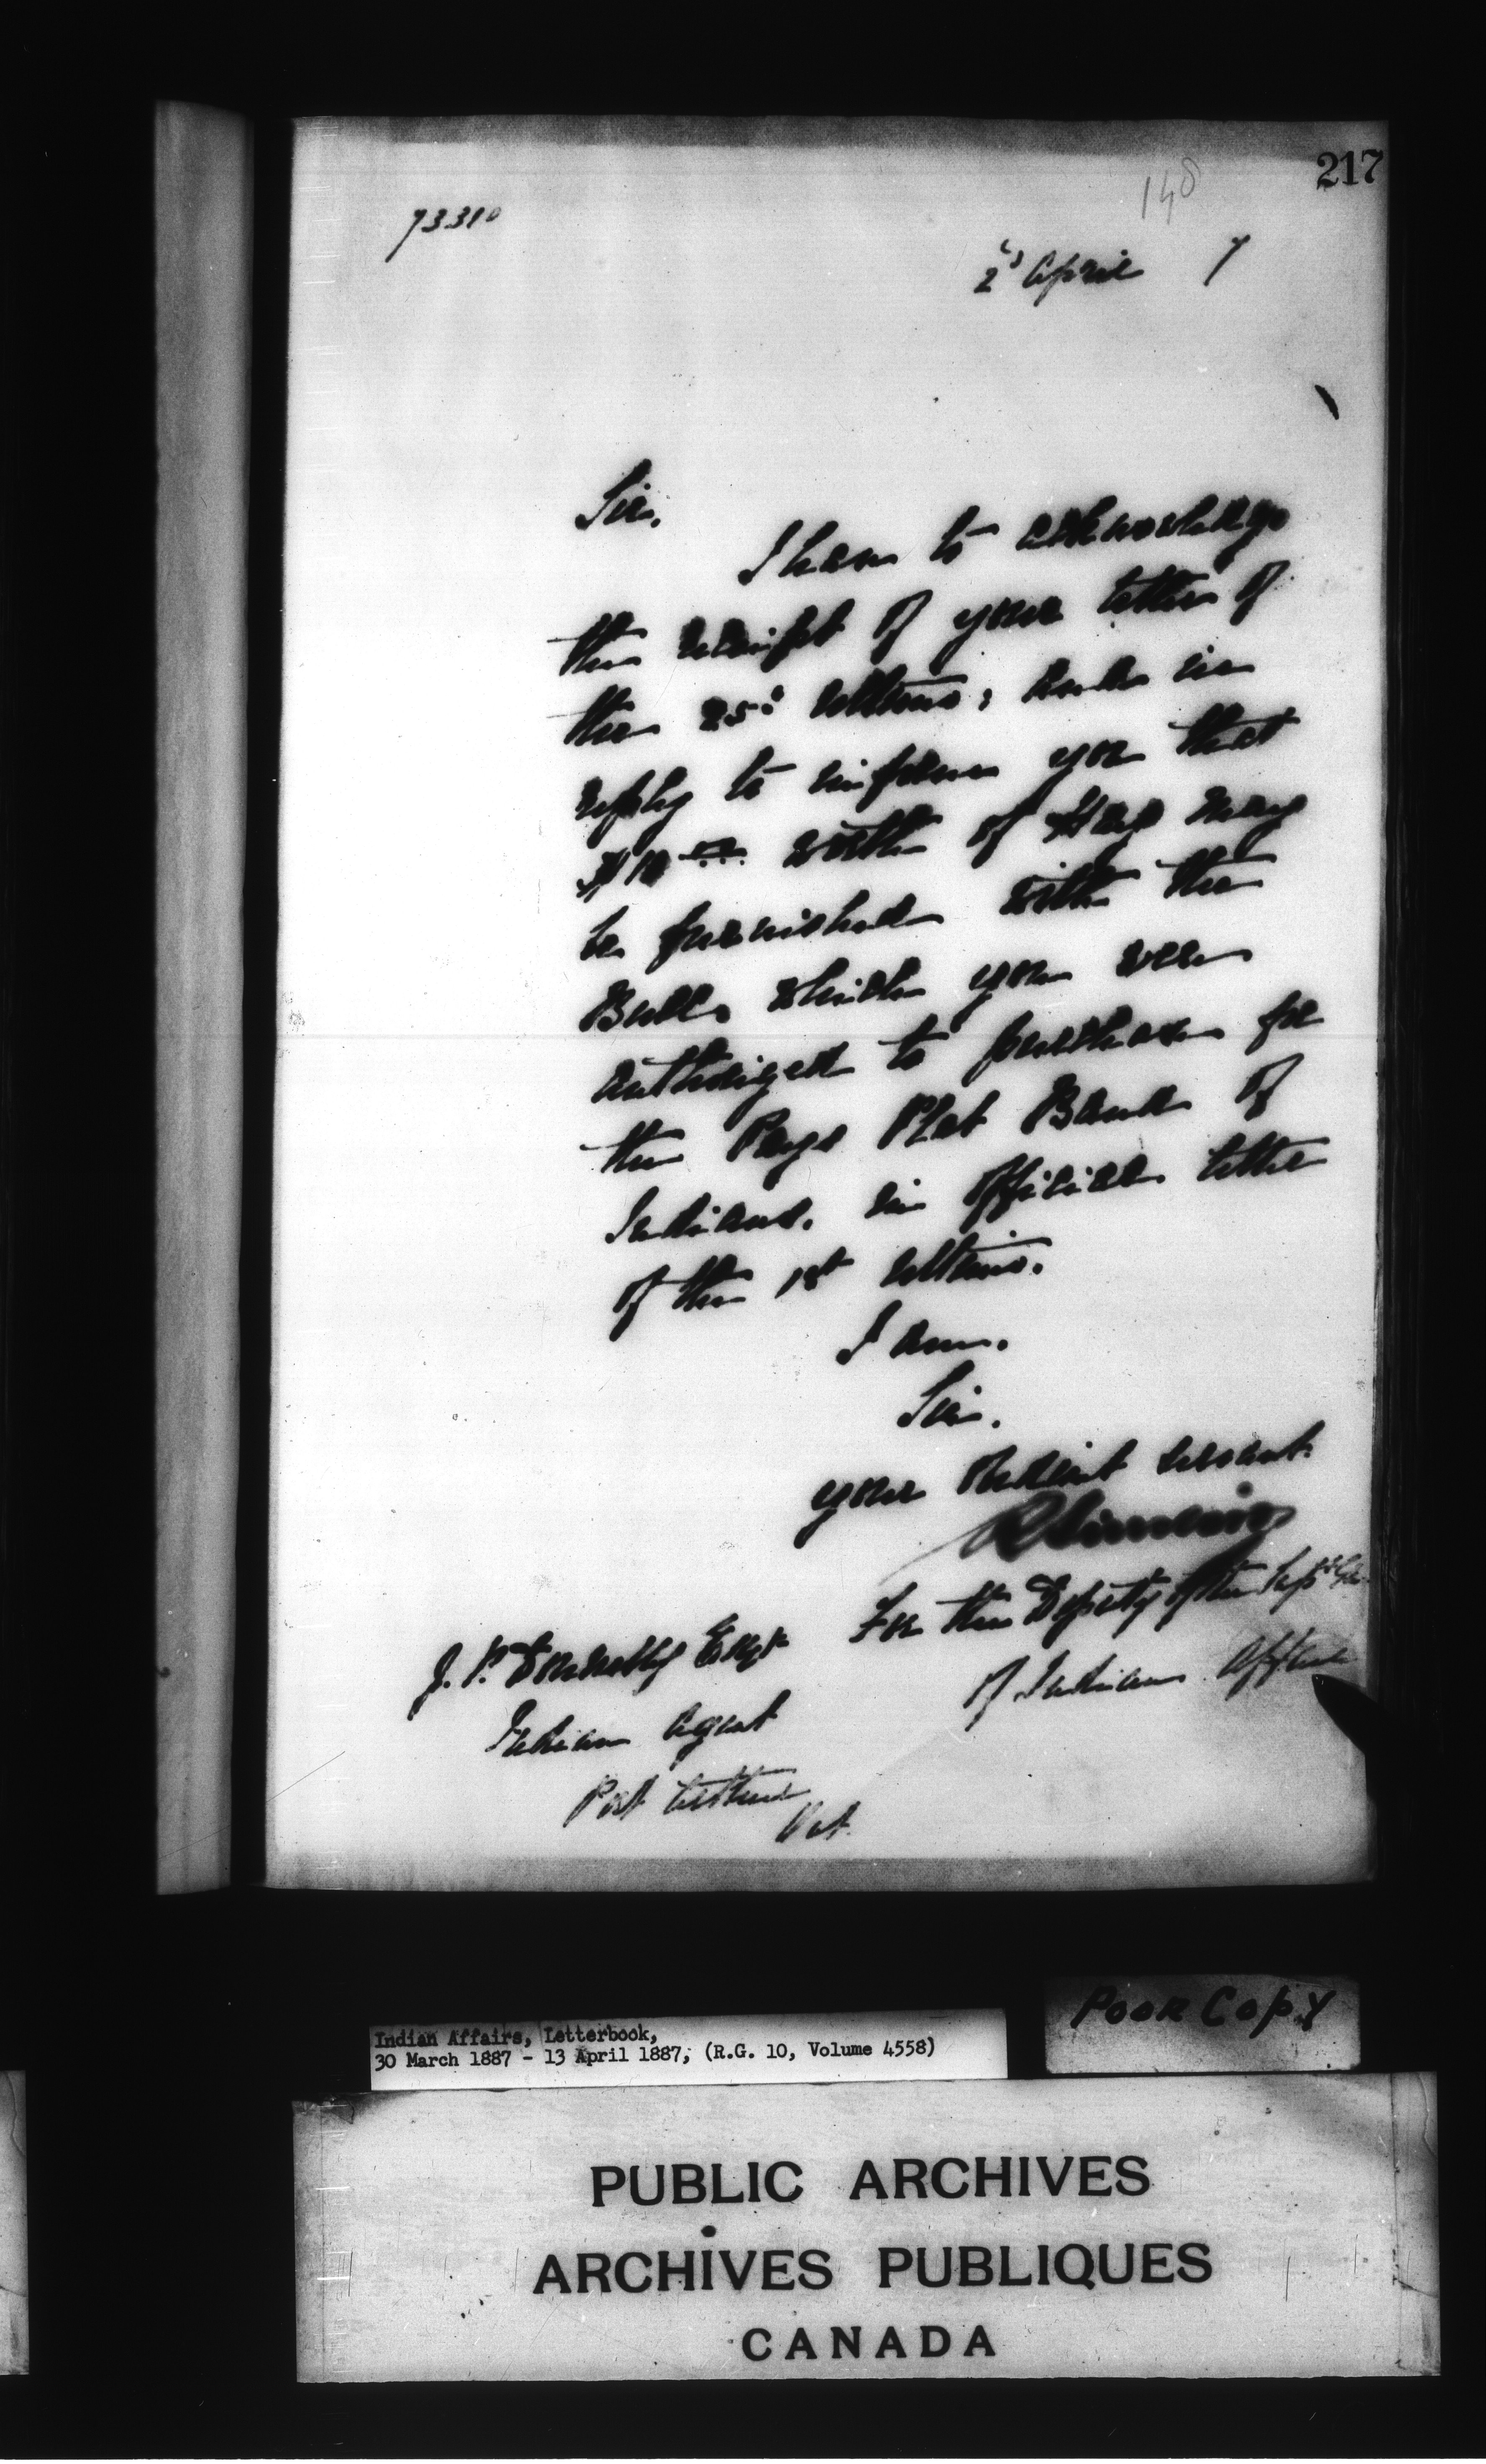 217
148
73310
2d April 7
Sir,
I have to acknowledge
the receipt of your letter of
the 25th ultimo; and in
reply to inform you that
$10 worth of Hay may
be furnished with the
Bull, which you were
authorized to purchase for
the Pays Plat Band of
Indians, in official letter
of the 1st ultimo.
I am,
Sir,
your obedient servant.
For the Deputy of the Supt Gen
of Indian Affairs
J. P. Donnelly Esqr
Indian Agent
Port Arthur
Ont.
Poor Copy
Indian Affairs, Letterbook,
30 March 1887 - 13 April 1887, (R.G. 10, Volume 4558)
PUBLIC ARCHIVES
ARCHIVES PUBLIQUES
CANADA